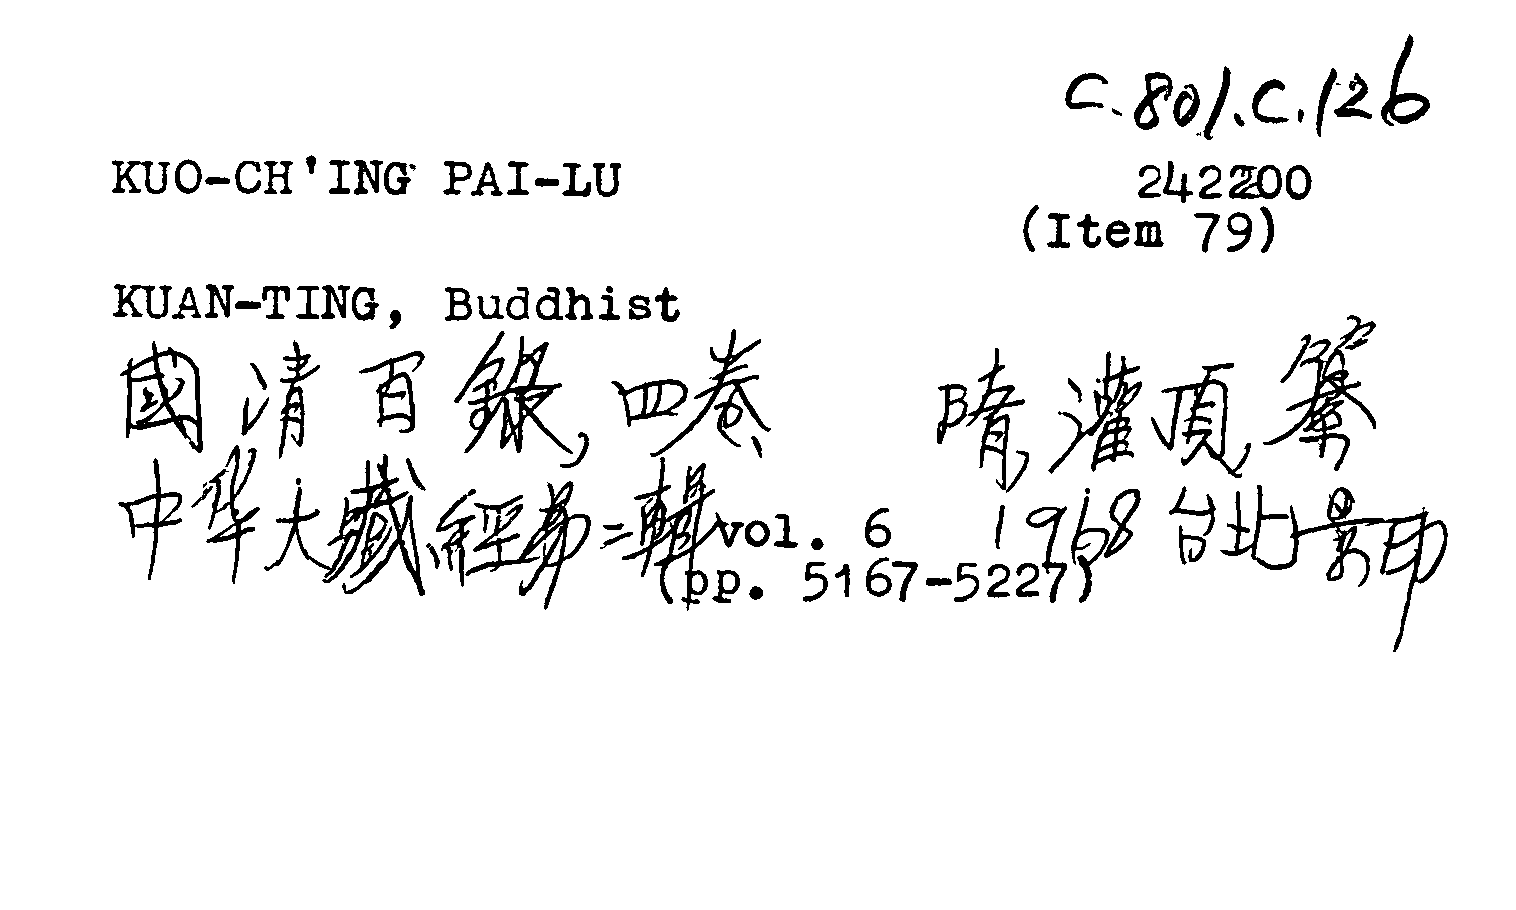 C.801.C.126
KUO-CH'ING PAI-LU 242200
(Item 79)
KUAN-TING, Buddhist
國清百錄,四卷、 隋灌頂,纂
中华大藏經第二輯vol. 6 1968 台北影印
(pp. 5167-5227)